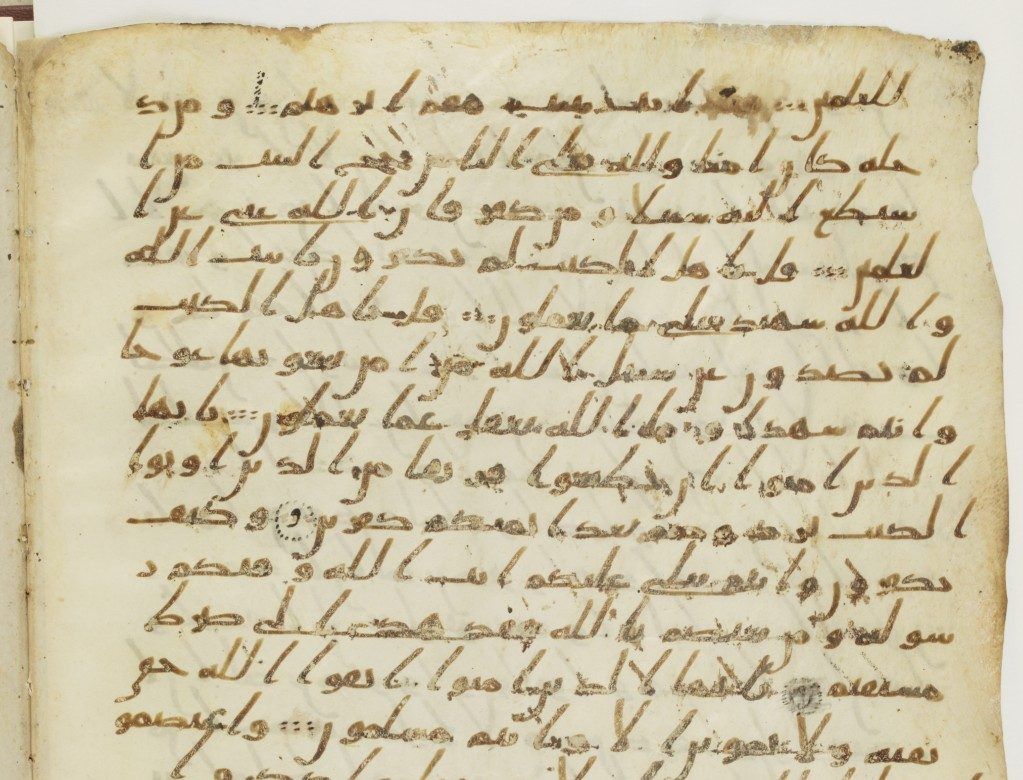 للعلمين فيه ايت بينت مقم ابرهيم ومن د
خله كان امنا ولله على الناس حج البيت من ا
ستطع اليه سبيلا ومن كفر فان الله غنى عن ا
لعلمين قل ياهل الكتب لم تكفرون بايت الله
والله شهيد على ما تعملون قل ياهل الكتب
لم تصدون عن سبيل الله من امن تبغونها عوجا
وانتم شهدا وما الله بغفل عما تعملون يايها
الذين امنوا ان تطيعوا فريقا من الذين اوتوا
الكتب يردوكم بعد ايمنكم كفرين وكيف
تكفرون وانتم تتلى عليكم ايت الله وفيكم ر
سوله ومن يعتصم بالله فقد هدى الى صرط
مستقيم يايها الذين امنوا اتقوا الله حق
تقته ولا تموتن الا وانتم مسلمون واعتصمو